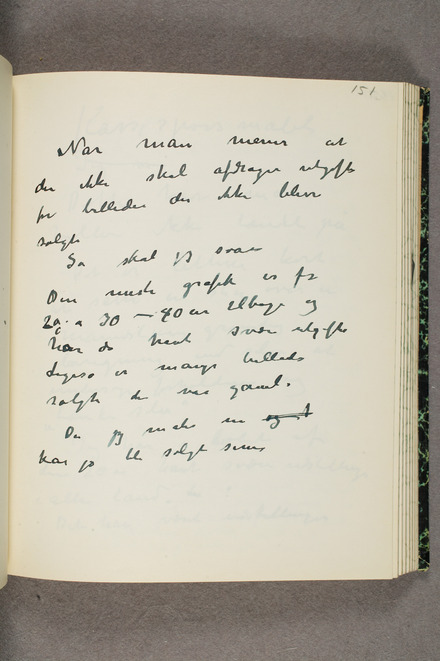 151
Nar man mener at
der ikke skal afdrages utgifter
for billeder der ikke blir
solgte
Så skal jeg svare
Den meste grafik er fra
20 a 30 – 40 år tilbage og
har da havt svære utgifter
Ligeså er mange billeder
solgte der var gamle.
De jeg maler nu
kan jo bli solgt senere